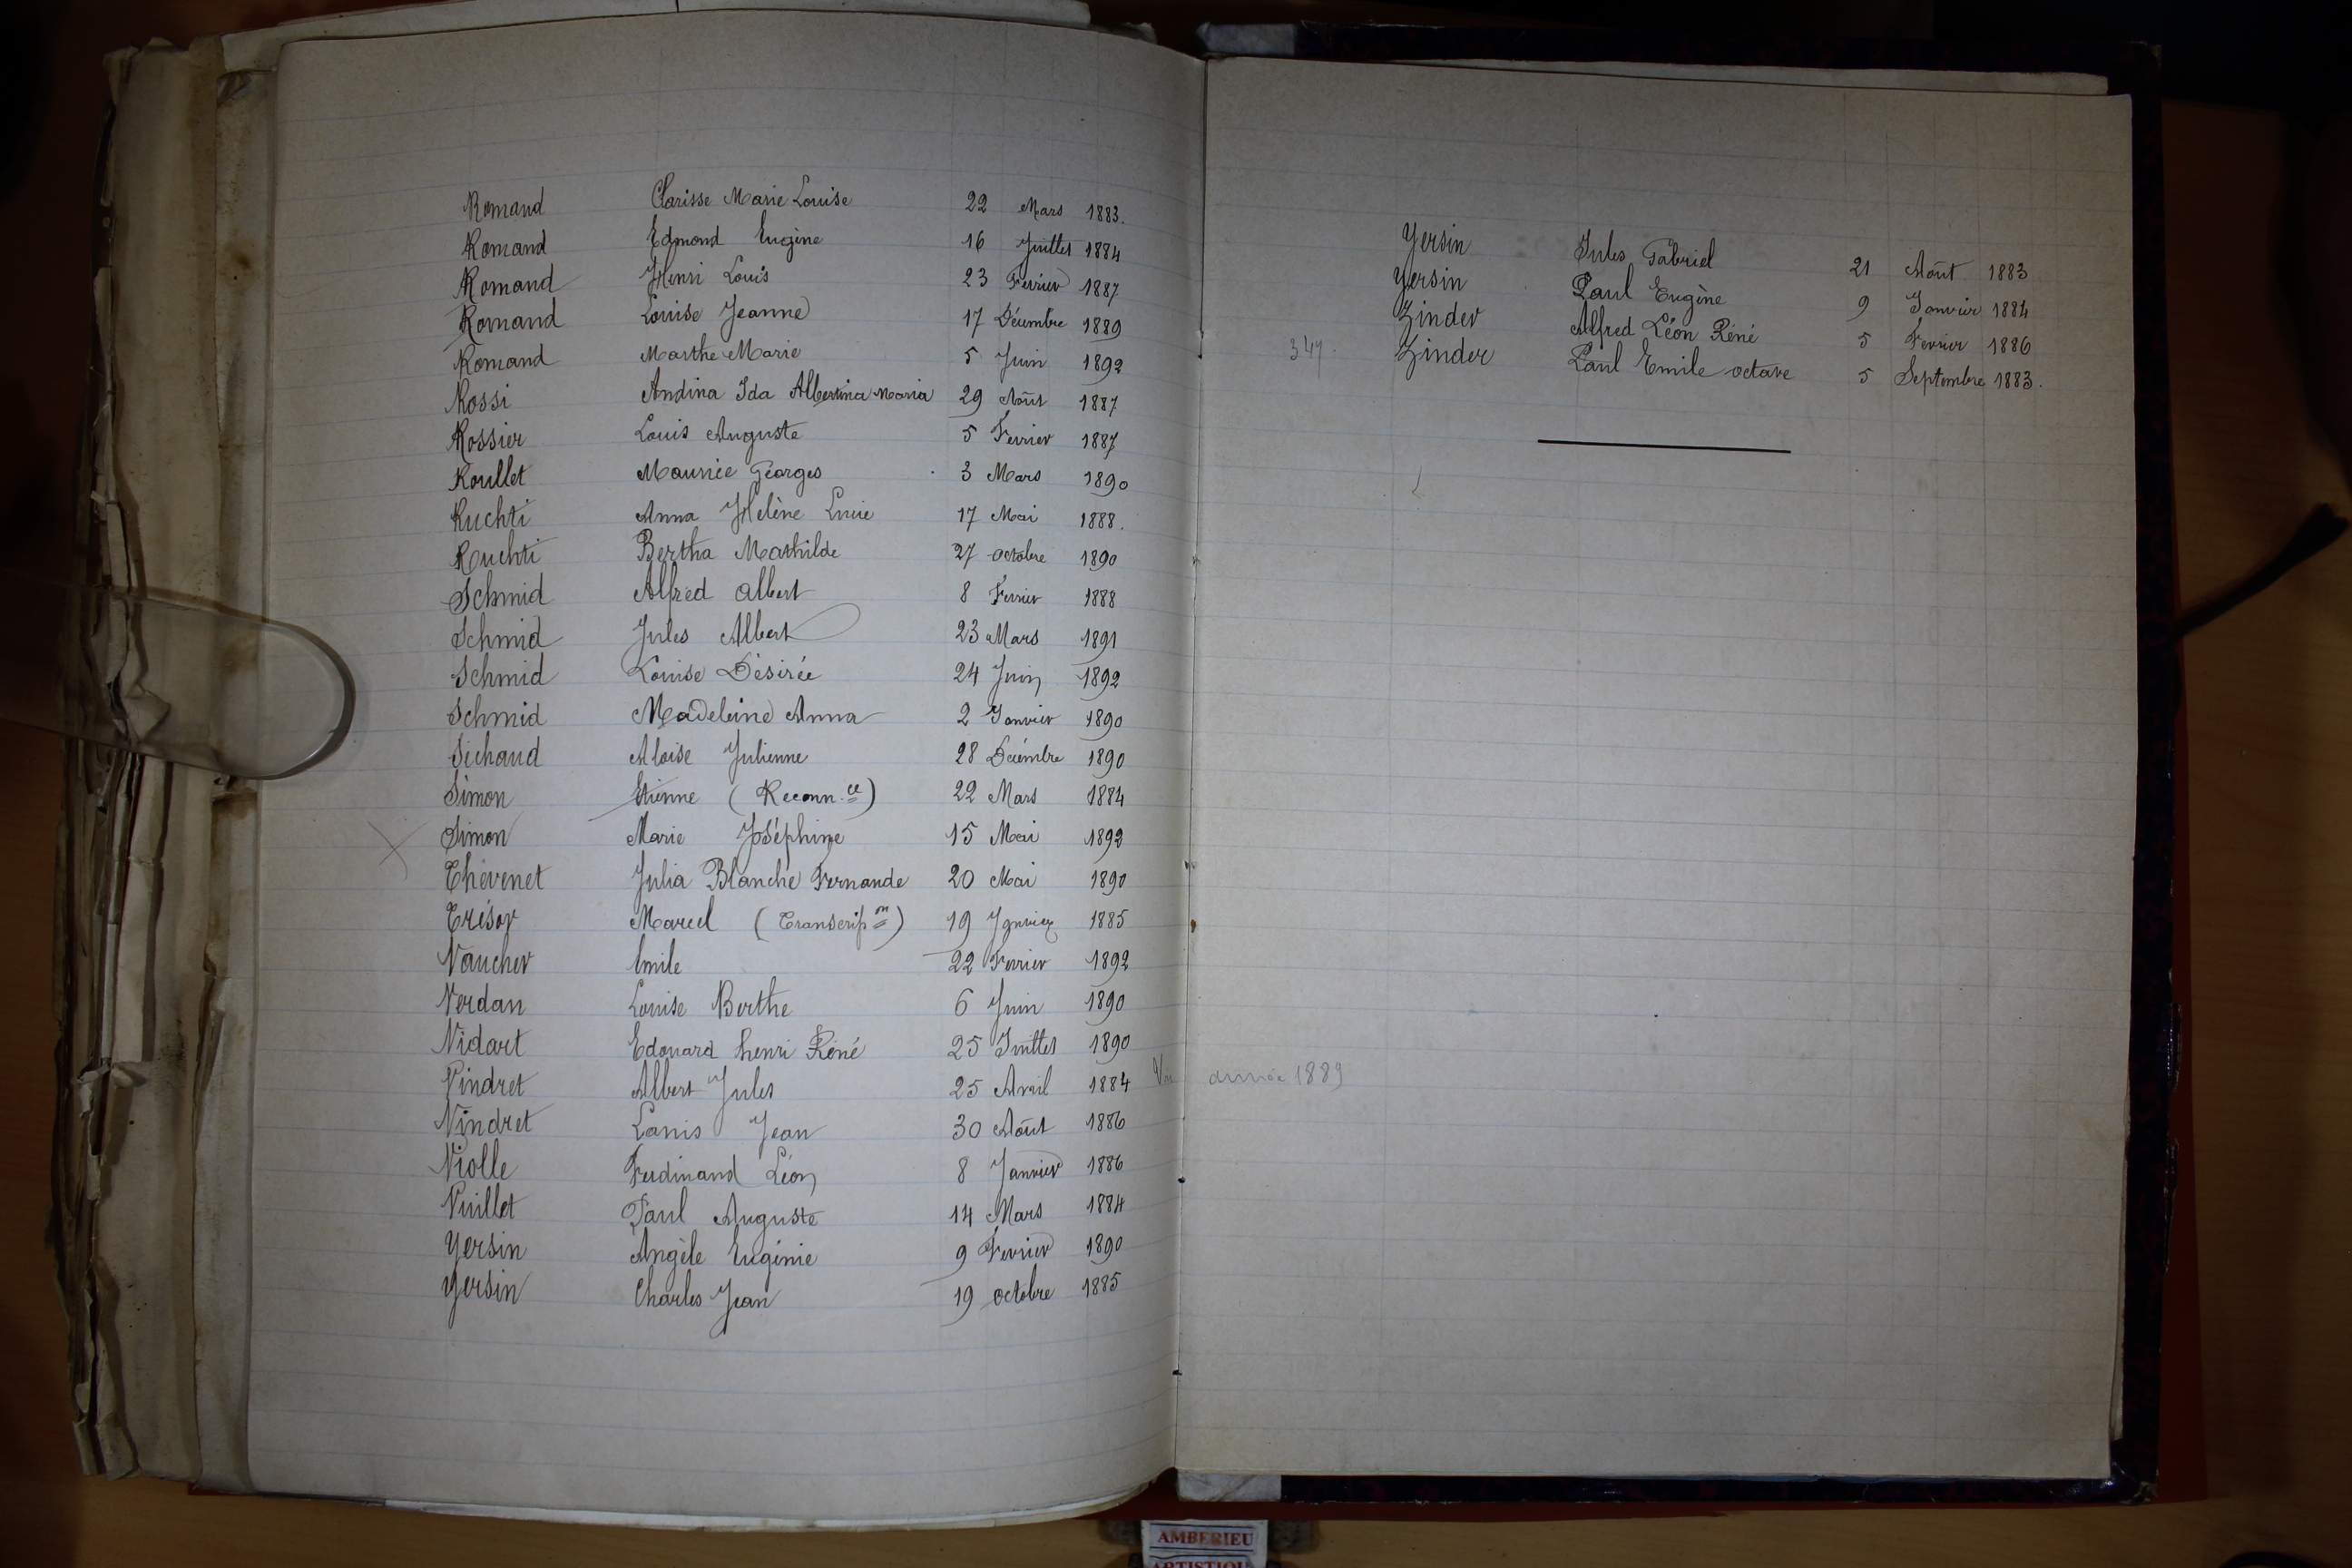 Romand Clarisse Marie Louise 22 Mars 1883.
Romand Edmond Eugène 16 Juillet 1884
Romand Henri Louis 23 Fevrier 1887
Romand Louise Jeanne 17 Décembre 1889
Romand Marthe Marie 5 Juin 1892
Rossi Andina Ida Albertina Maria 29 Août 1887
Rossier Louis Auguste 5 Fevrier 1887
Roullet Maurice Georges 3 Mars 1890
Ruchti Anna Hélène Lucie 17 Mai 1888.
Ruchti Bertha Mathilde 27 octobre 1890
Schmid Alfred Albert 8 Fevrier 1888
Schmid Jules Albert 23 Mars 1891
Schmid Louise Désirée 24 Juin 1892
Schmid Madeleine Anna 2 Janvier 1890
Sichaud Aloïse Julienne 28 Décembre 1890
Simon Etienne (Reconn.ce) 22 Mars 1884
Simon Marie Joséphine 15 Mai 1892
Thévenet Julia Blanche Fernande 20 Mai 1890
Trésor Marcel (Transcrip.on) 19 Janvier 1885
Vaucher Emile 22 Fevrier 1892
Verdan Louise Berthe 6 Juin 1890
Vidart Edouard henri Réné 25 Juillet 1890
Vindret Albert Jules 25 Avril 1884
Vindret Louis Jean 30 Août 1886
Violle Ferdinand Léon 8 Janvier 1886
Vuillet Paul Auguste 14 Mars 1884
Yersin Angèle Eugénie 9 Fevrier 1890
Yersin Charles Jean 19 octobre 1885
Yersin Jules Gabriel 21 Août 1883
Yersin Paul Eugène 9 Janvier 1884
Zinder Alfred Léon Réné 5 Fevrier 1886
347. Zinder Paul Emile octave 5 Septembre 1883.
année 1889
AMBERIEU